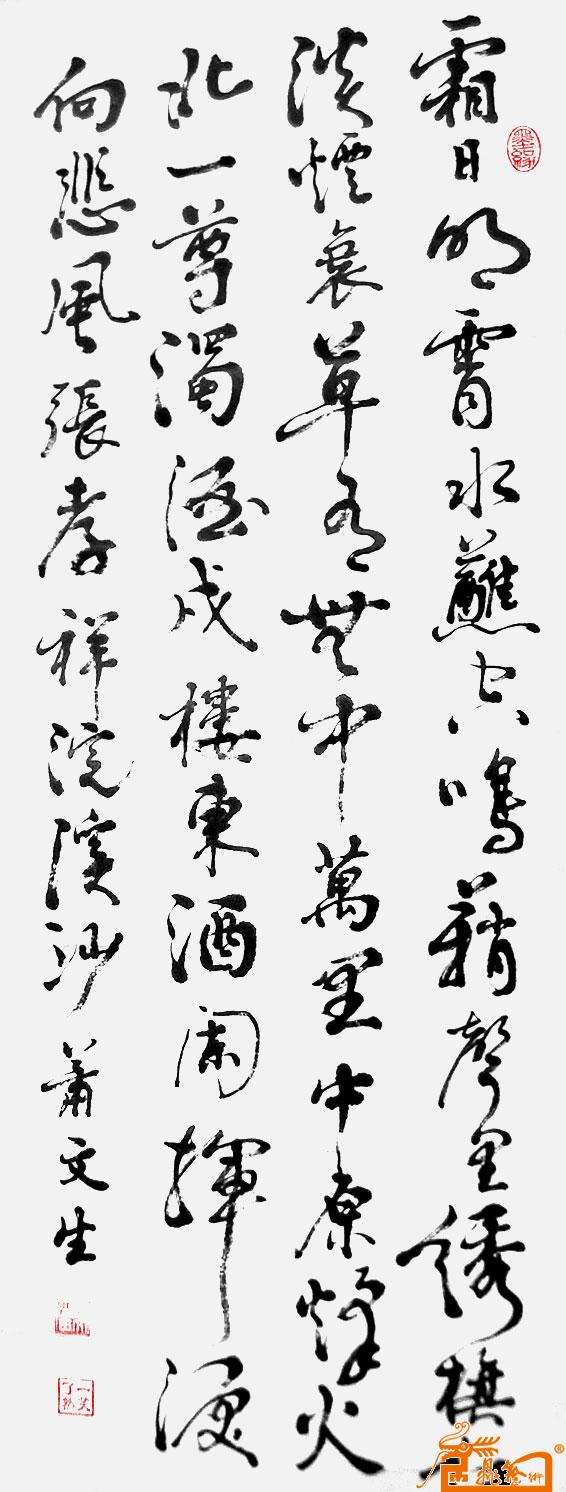 霜日明霄水蘸空鳴鞘聲里绣旗
淡煙衰草有無中萬里中原烽火
北一尊濁酒戍樓東酒闌揮淚
向悲風張孝祥浣溪沙蕭文生